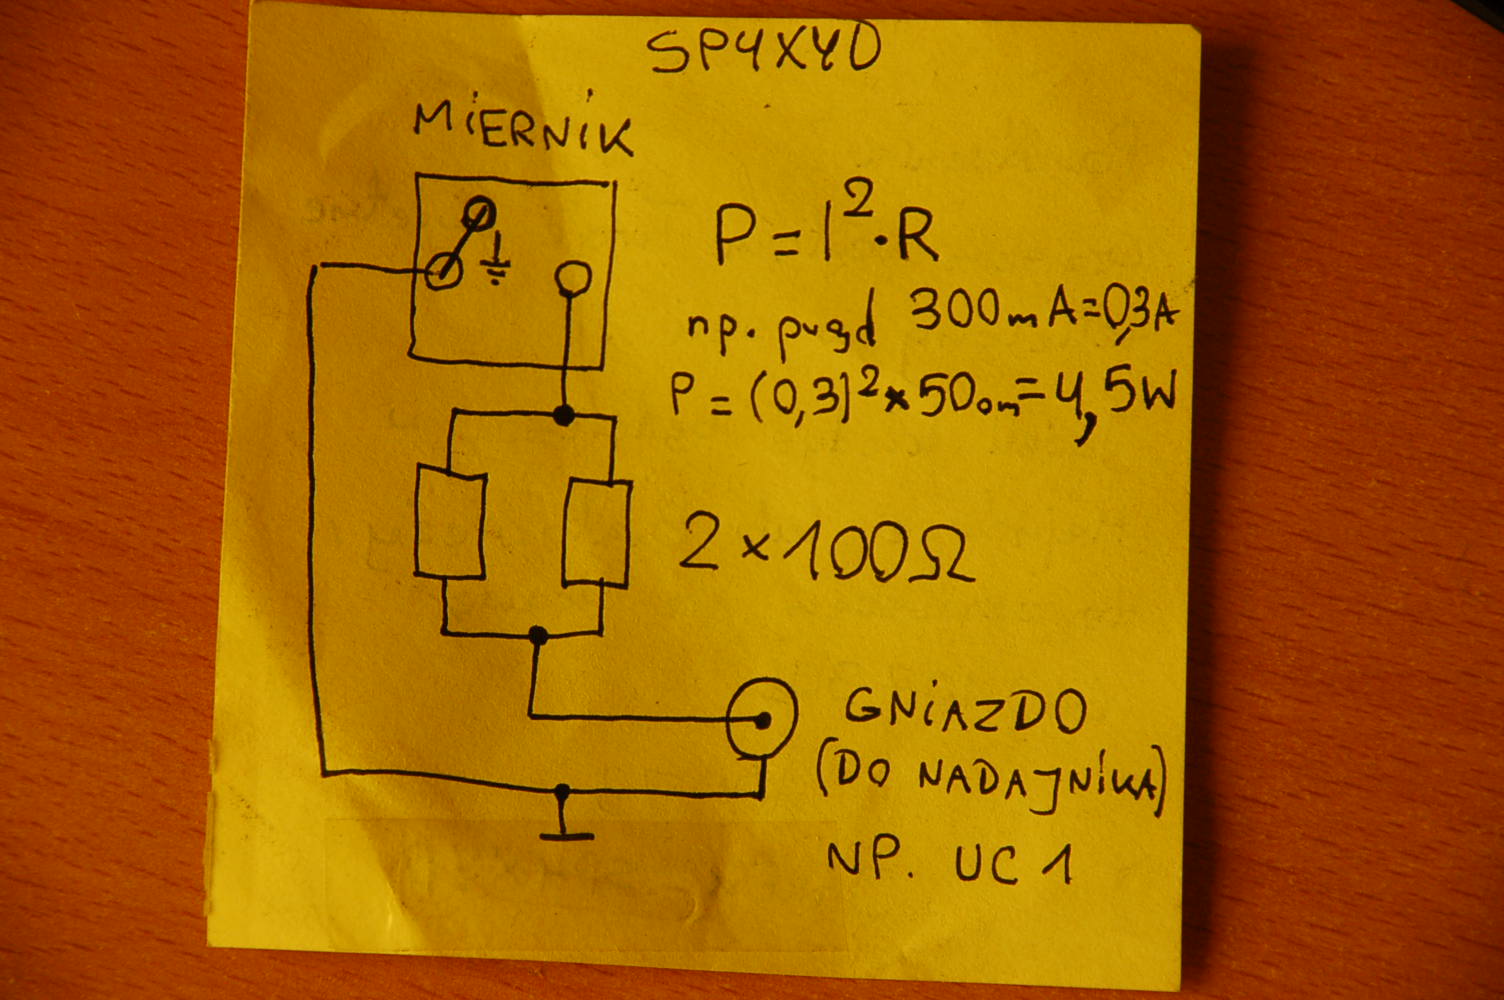 SP4XYD
MiERNiK
P = I²·R
np. prąd 300mA=0,3A
P = (0,3)²×50om=4,5W
2×100Ω
GNiAZDO
(DO NADAJNiKA)
NP. UC1